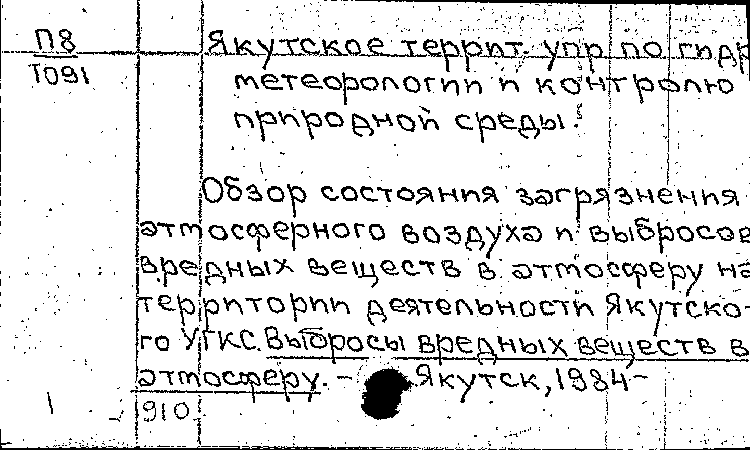 П8
Т091
Якутское террит. упр по гидр
метеорологии и контролю
природной среды.
Обзор состояния загрязнения
атмосферного воздуха и выбросов
вредных веществ в атмосферу на
территории деятельности Якутско-
го УГКС. Выбросы вредных веществ в
атмосферу. – Якутск, 1984–
910